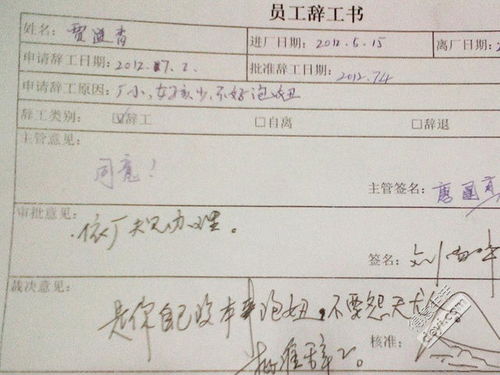 员工辞工书
姓名: 贾 香 进厂日期: 2012.5.15 离厂日期:
申请辞工日期: 2012. 7. 2. 批准辞工日期: 2012.7.4
申请辞工原因: 厂小,女孩少,不好泡妞
辞工类别: ☑辞工 □自离 □辞退
主管意见:
同意!
主管签名: 唐
审批意见:
依厂规办理。
签名: 刘
裁决意见:
是你自己没本事泡妞,不要怨天尤人
批准辞工。
核准: